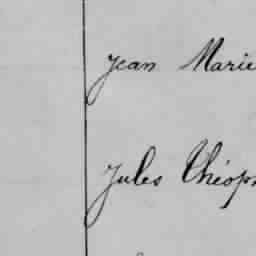 Jean Marie
Jules Théop